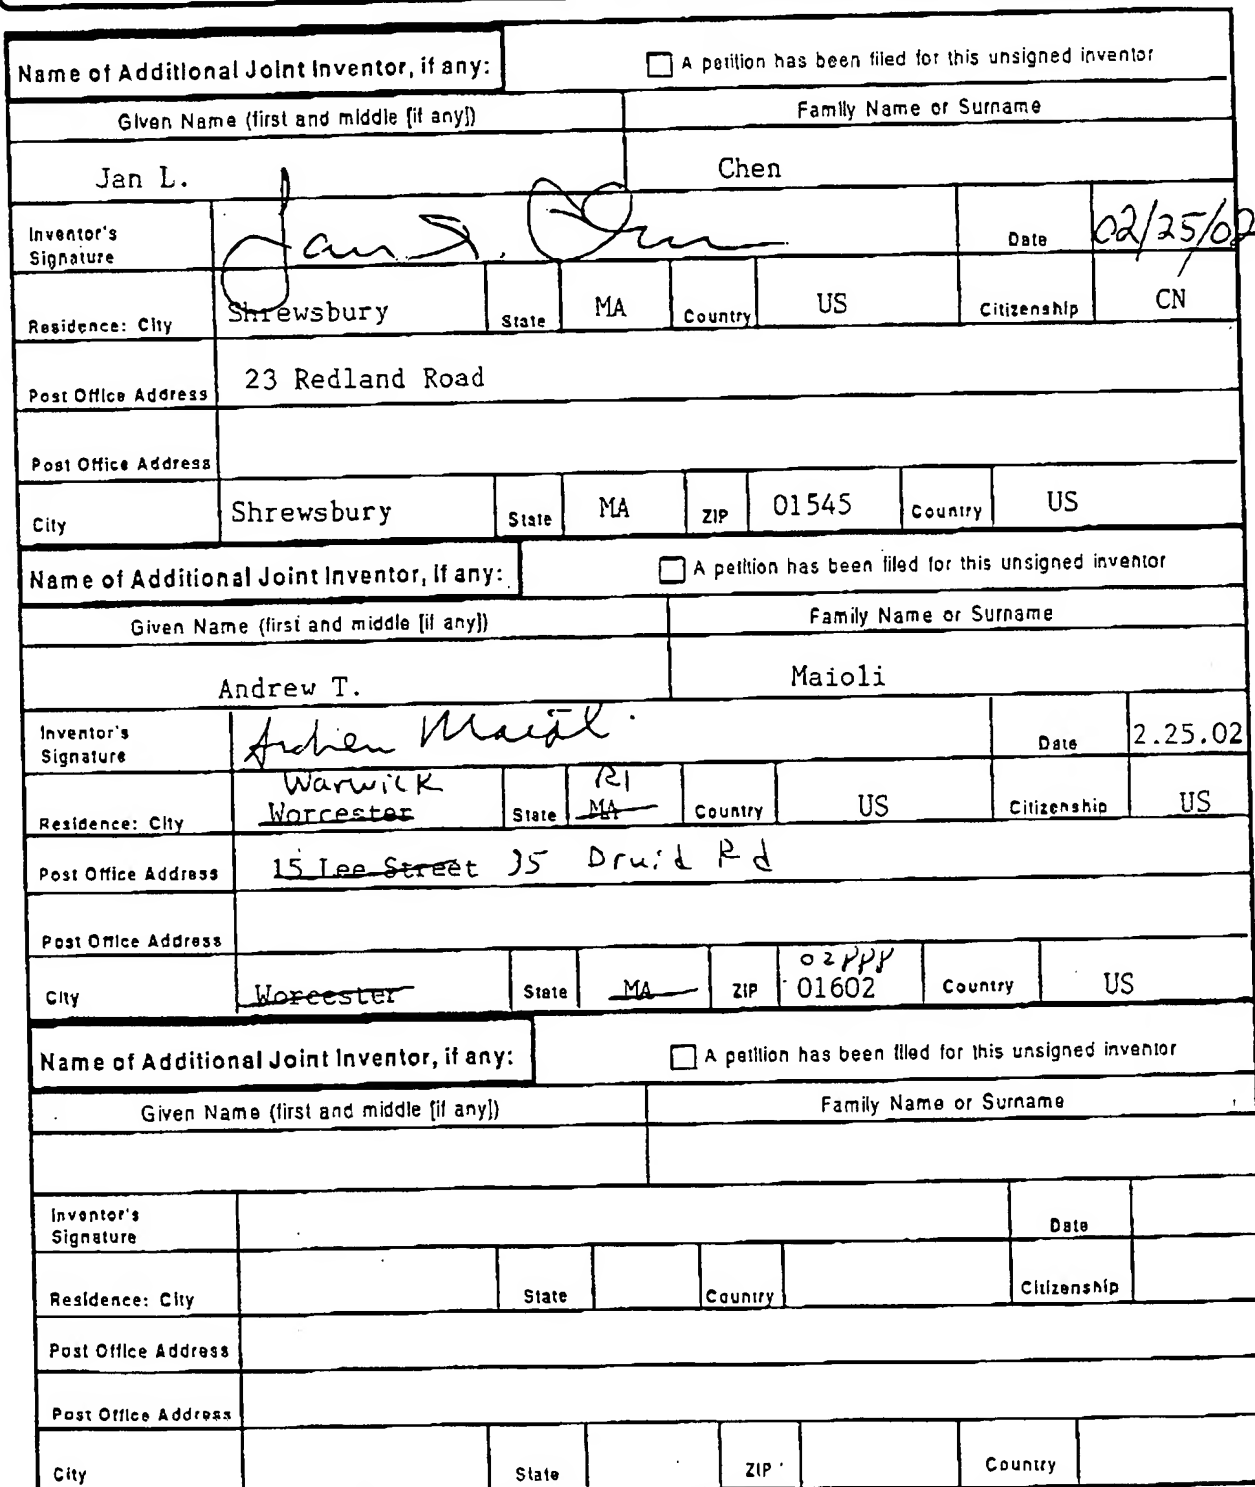 Name of Additional Joint Inventor, if any: A petition has been filed for this unsigned inventor
Given Name (first and middle [if any]) Family Name or Surname
Jan L. Chen
Inventor's Signature Jan L. Chen Date 02/25/02
Residence: City Shrewsbury State MA Country US Citizenship CN
Post Office Address 23 Redland Road
Post Office Address
City Shrewsbury State MA ZIP 01545 Country US
Name of Additional Joint Inventor, if any: A petition has been filed for this unsigned inventor
Given Name (first and middle [if any]) Family Name or Surname
Andrew T. Maioli
Inventor's Signature Andrew Maioli Date 2.25.02
Warwick RI
Residence: City Worcester State MA Country US Citizenship US
Post Office Address 15 Lee Street 35 Druid Rd
Post Office Address
02888
City Worcester State MA ZIP 01602 Country US
Name of Additional Joint Inventor, if any: A petition has been filed for this unsigned inventor
Given Name (first and middle [if any]) Family Name or Surname
Inventor's Signature Date
Residence: City State Country Citizenship
Post Office Address
Post Office Address
City State ZIP Country